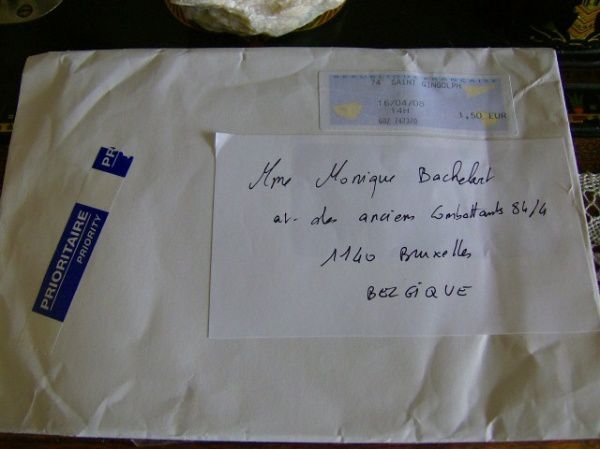 REPUBLIQUE FRANCAISE
74 SAINT GINGOLPH
16/04/08
14H
1,50 EUR
PR
PRIORITAIRE
PRIORITY
Mme Monique Bachelart
av. des anciens Combattants 84/4
1140 Bruxelles
BELGIQUE